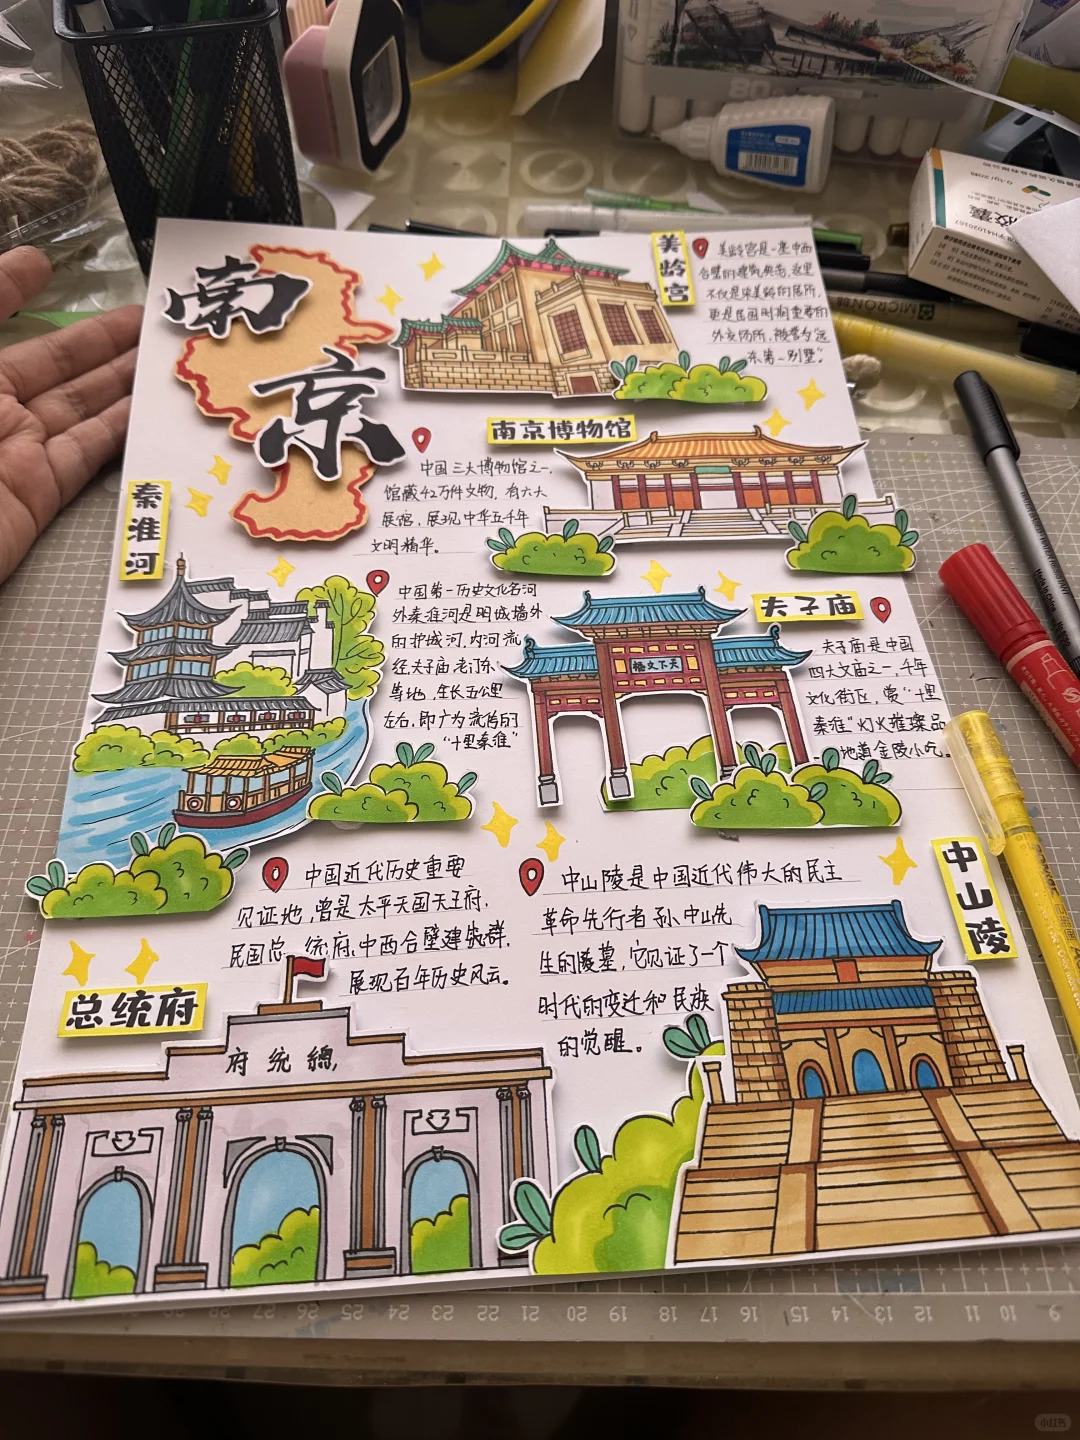 南
京
美龄宫
美龄宫是一座中西
合璧的建筑典范,这里
不仅是宋美龄的居所,
更是民国时期重要的
外交场所,被誉为“远
东第一别墅”。
南京博物馆
中国三大博物馆之一,
馆藏42万件文物,有六大
展馆,展现中华五千年
文明精华。
秦淮河
中国第一历史文化名河
外秦淮河是明城墙外
的护城河,内河流
经夫子庙老门东
等地,全长五公里
左右,即广为流传的
“十里秦淮”
夫子庙
夫子庙是中国
四大文庙之一,千年
文化街区,赏“十里
秦淮”灯火璀璨品
地道金陵小吃。
天下文枢
总统府
中国近代历史重要
见证地,曾是太平天国天王府,
民国总统府,中西合璧建筑群,
展现百年历史风云。
府統總
中山陵
中山陵是中国近代伟大的民主
革命先行者孙中山先
生的陵墓,它见证了一个
时代的变迁和民族
的觉醒。
胶囊
国药准字H41020167
MICRON
80
9 10 11 12 13 14 15 16 17 18 19 20 21 22 23 24 25 26 27 28
小红书